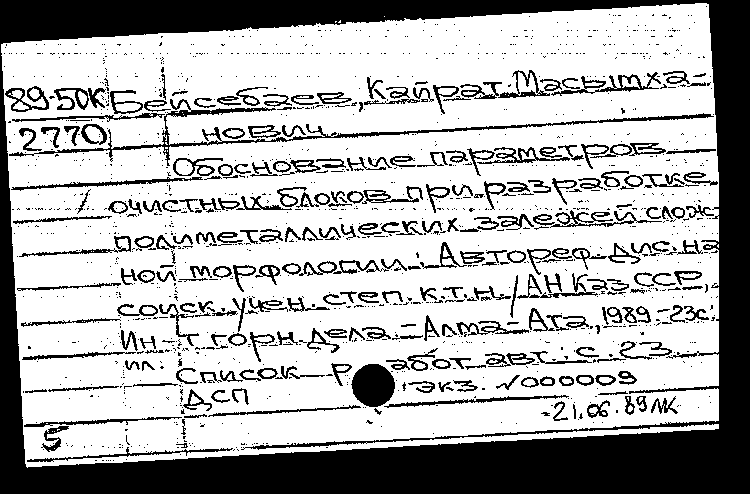 89-50К Бейсебаев, Кайрат Масымха-
2770 нович.
Обоснование параметров
очистных блоков при разработке
полиметаллических залежей слож-
ной морфологии : Автореф. дис. на
соиск. учен. степ. к.т.н. / АН КазССР,
Ин-т горн. дела. - Алма-Ата, 1989. - 23с:
ил.
Список работ авт.: с. 23.
ДСП экз. №000009
21.06.89ЛК
5